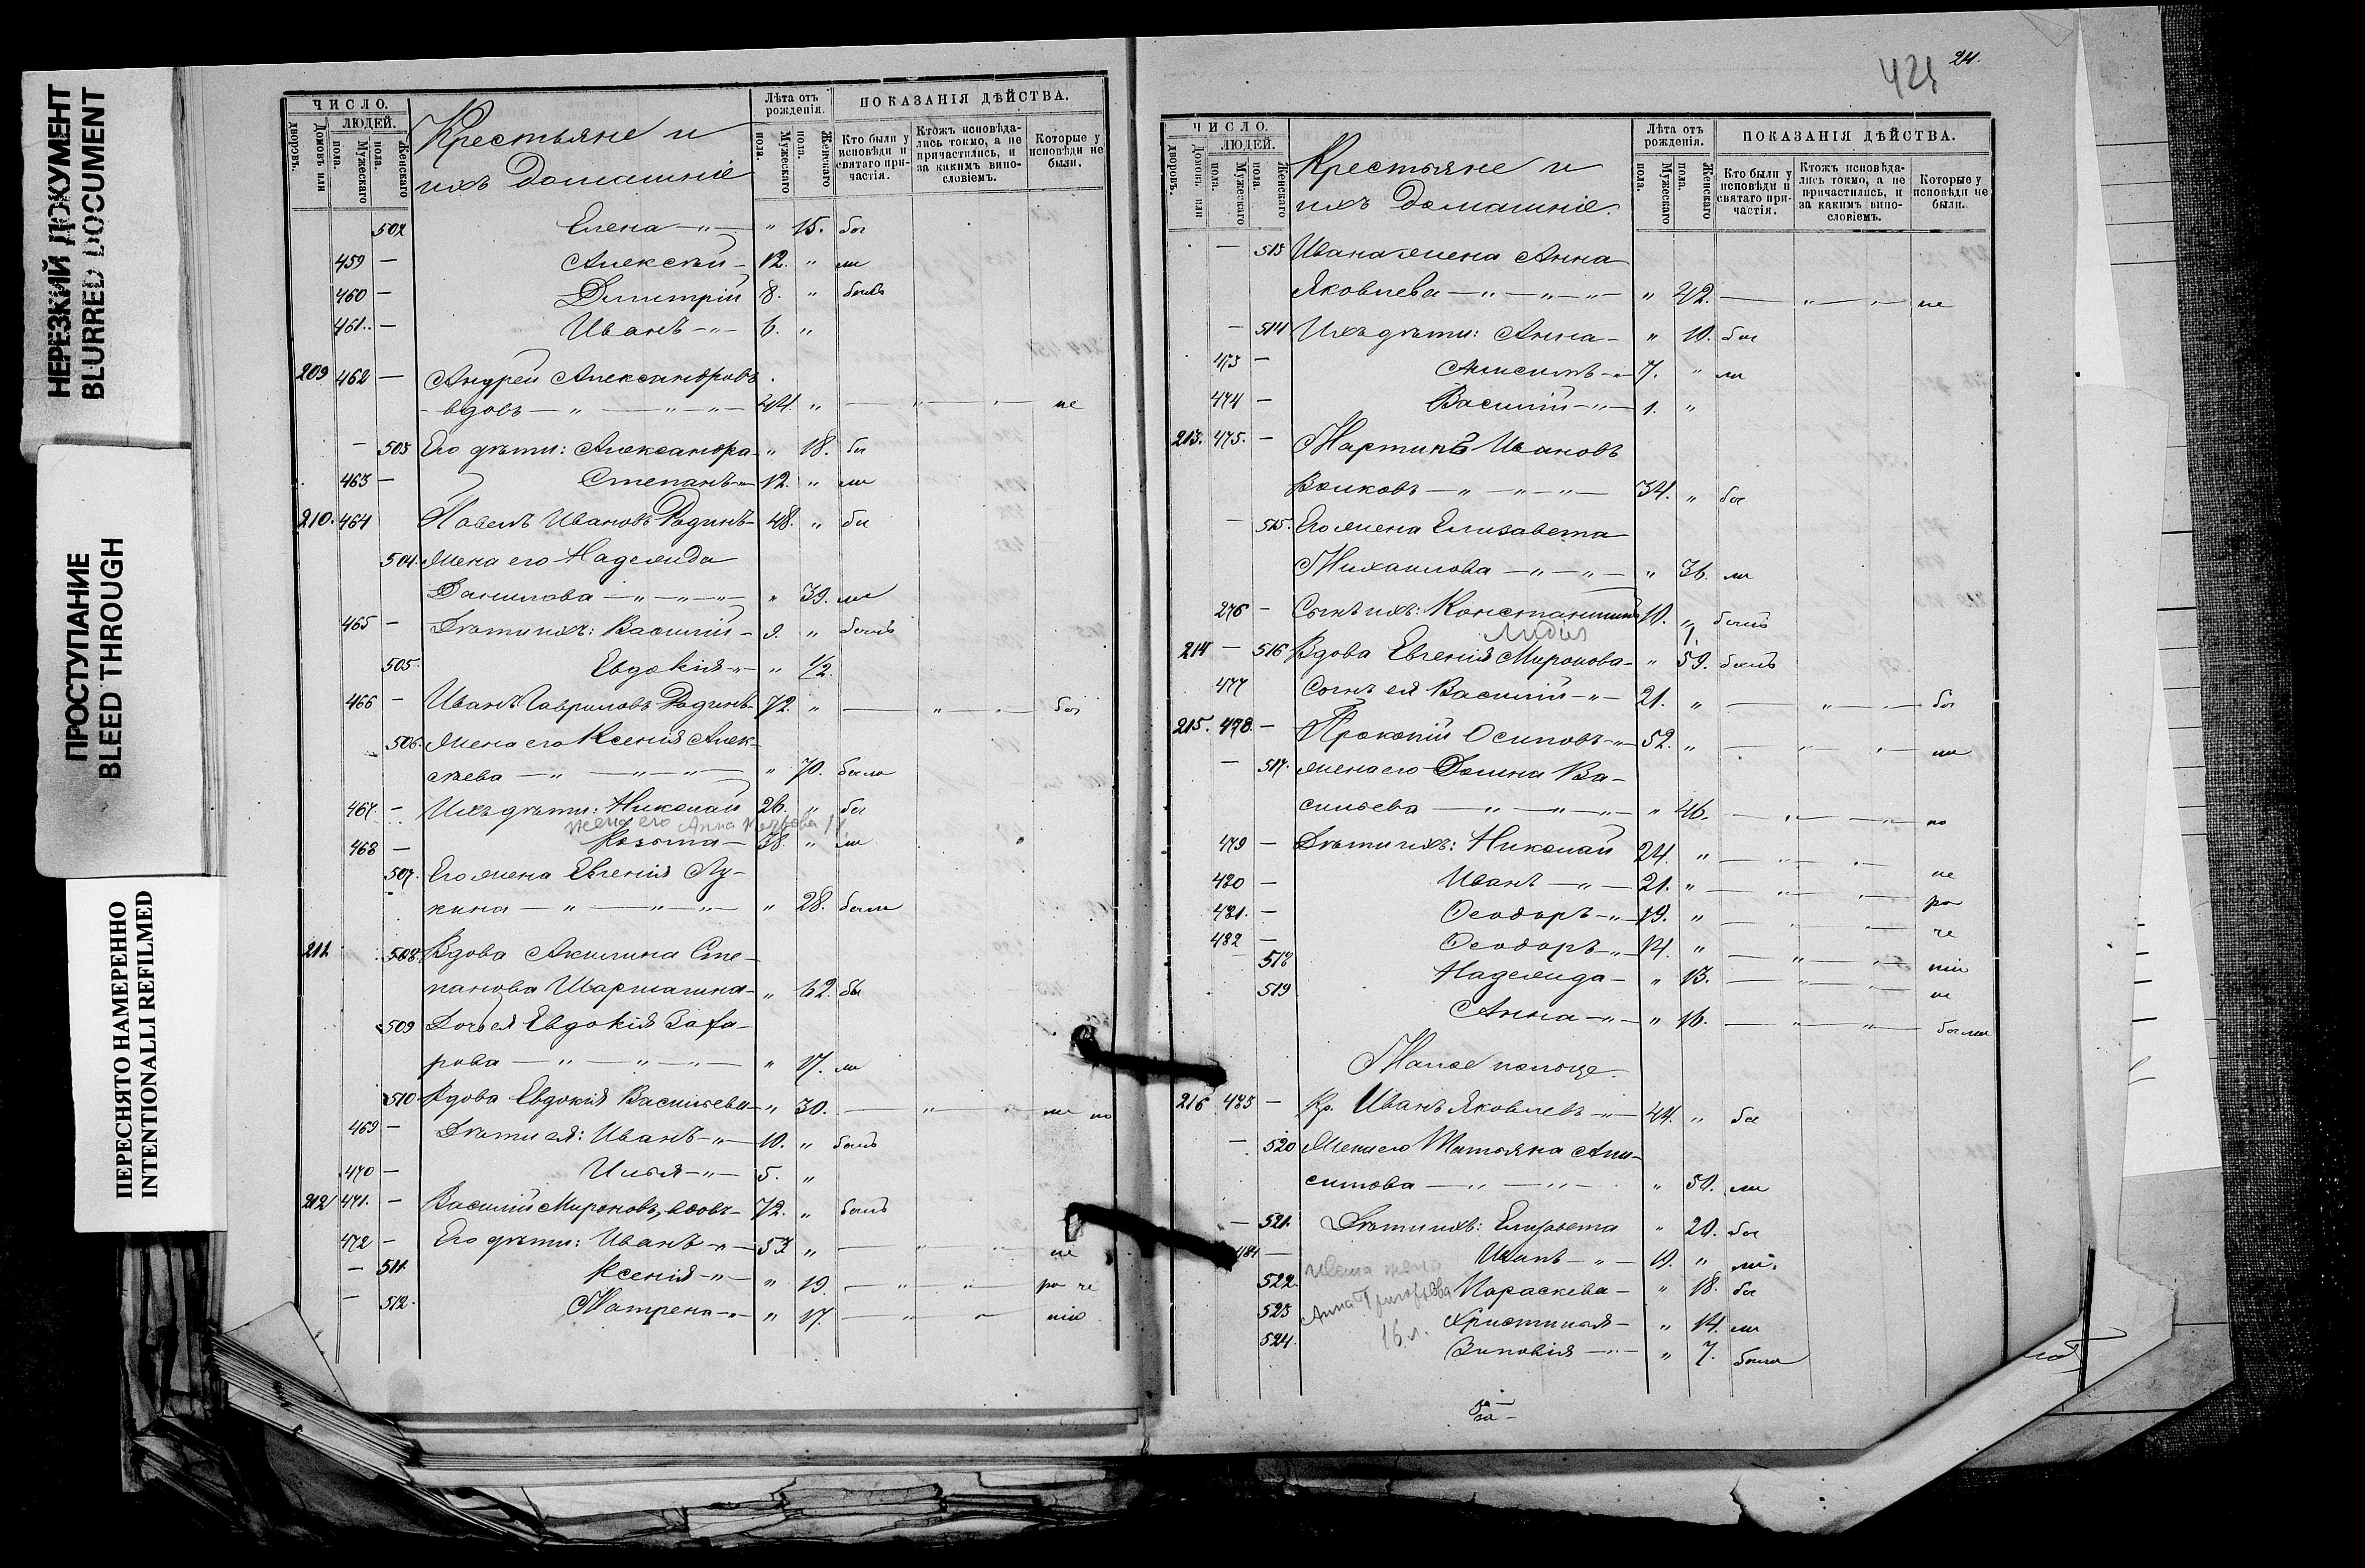 НЕРЕЗКИЙ ДОКУМЕНТ
BLURRED DOCUMENT
ПРОСТУПАНИЕ
BLEED THROUGH
ПЕРЕСНЯТО НАМЕРЕННО
INTENTIONALLI REFILMED
ЧИСЛО.
ЛЮДЕЙ.
Домовъ или дворовъ.
Мужескаго пола.
Женскаго пола.
Крестьяне и
ихъ домашніе
Лѣта отъ рожденія.
Мужескаго пола.
Женскаго пола.
ПОКАЗАНІЯ ДѢЙСТВА.
Кто были у исповѣди и святаго причастія.
Ктожъ исповѣдались токмо, а не причастились, и за какимъ винословіемъ.
Которые у исповѣди не были.
502 Елена — " — " 15. бы
459 — Алексѣй — 12. " ли
460 — Димитрій 8. " былъ
461. — Иванъ — " — 6. "
209 462 — Андрей Александровъ
вдовъ — " — " — " — 44. " — " — " — не
— 503 Его дѣти: Александра — " 18. бы
463 — Степанъ — " — 12. " ли
210. 464 Павелъ Ивановъ Родинъ — 48. " бы
504. Жена его Надежда
Данилова — " — " — " — " 39. ли
465 — Дѣти ихъ: Василій — 9. " былъ
505. Евдокія — " — " 1/2.
466 — Иванъ Гавриловъ Родинъ — 72. " — " — " — бы
506. Жена его Ксенія Алек-
сѣева — " — " — " — " 70. была
467. — Ихъ дѣти: Николай 26. " бы
жена его Анна
468 — Козьма — 38. " ли
507. Его жена Евгенія Лу-
кина — " — " — " — " 28. были
211. 508. Вдова Акилина Сте-
панова — " 62. бы
509 Дочь ея Евдокія Заха-
рова — " — " — " — " 17. ли
510 Вдова Евдокія Васильева — " 30. — " — " — не
469 — Дѣти ея: Иванъ — " — 10. " былъ
470 — Илья — " — 5. "
212 471. — Василій Мироновъ, вдовъ — 72. " былъ
472 — Его дѣти: Иванъ — " — 53 " — " — " не
— 511 Ксенія — " — " 19. — " — " —
— 512. Матрена — " — " 17. — " — " —
421
24.
ЧИСЛО.
ЛЮДЕЙ.
Домовъ или дворовъ.
Мужескаго пола.
Женскаго пола.
Крестьяне и
ихъ домашніе.
Лѣта отъ рожденія.
Мужескаго пола.
Женскаго пола.
ПОКАЗАНІЯ ДѢЙСТВА.
Кто были у исповѣди и святаго причастія.
Ктожъ исповѣдались токмо, а не причастились, и за какимъ винословіемъ.
Которые у исповѣди не были.
— 513 Ивана жена Анна
Яковлева — " — " — " — " 42. — " — " — не
— 514 Ихъ дѣти: Анна — " 10. бы
473 — Анисимъ — " — 7. " ли
474 — Василій — " — 1. "
213. 475. — Мартинъ Ивановъ
Волковъ — " — " — " — 34. " бы
— 515. Его жена Елизавета
Михаилова — " — " — " 36. ли
276 — Сынъ ихъ: Константинъ 10. " былъ
Лидія 1.
214 — 516 Вдова Евгенія Миронова — " 59. былъ
477 Сынъ ея Василій — " — 21. " — " — " — бы
215. 478. — Прокопій Осиповъ — " — 52. " — " — " — ли
— 517. жена его Домна Ва-
сильева — " — " — " — " 46. — " — " — по
479 — Дѣти ихъ: Николай 24. " — " — " — не
420 — Иванъ — " — 21. " — " — " —
421. — Ѳеодоръ — " — 19. " — " — " —
482 — Ѳеодоръ — " — 14. " — " — " —
518 Надежда — " 13. — " — " — не
519 Анна — " — " 16. — " — " — были
Малое полоце.
216 423 — Кр. Иванъ Яковлевъ — " — 44. " бы
— 520 Жена его Татьяна Ани-
симова — " — " — " 50. ли
— 521. Дѣти ихъ: Елизавета " 20. бы
484 — Иванъ — " — 19. " ли.
Ивана жена
Анна Григорьева
16 л.
522. Параскева — " 18. бы
523 Христина — " 14. ли
524. Зиновія — " — " 7. были